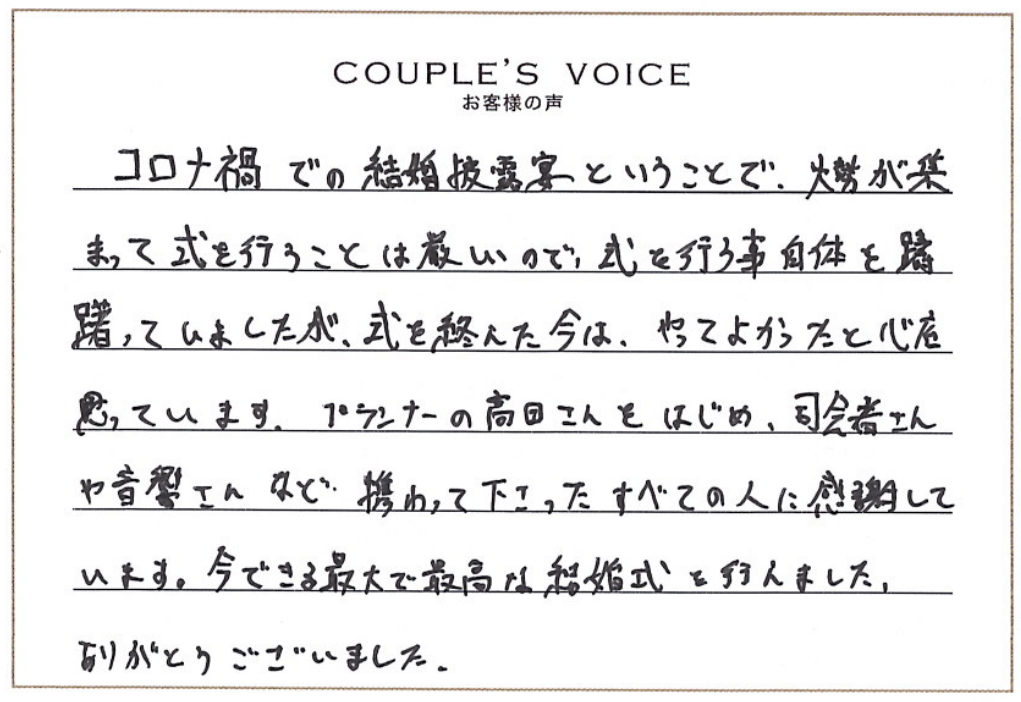 COUPLE'S VOICE
お客様の声
コロナ禍での結婚披露宴ということで、大勢が集
まって式を行うことは厳しいので、式を行う事自体を躊
躇っていましたが、式を終えた今は、やってよかったと心底
思っています。プランナーの高田さんをはじめ、司会者さん
や音響さんなど携わって下さったすべての人に感謝して
います。今できる最大で最高な結婚式を行えました。
ありがとうございました。